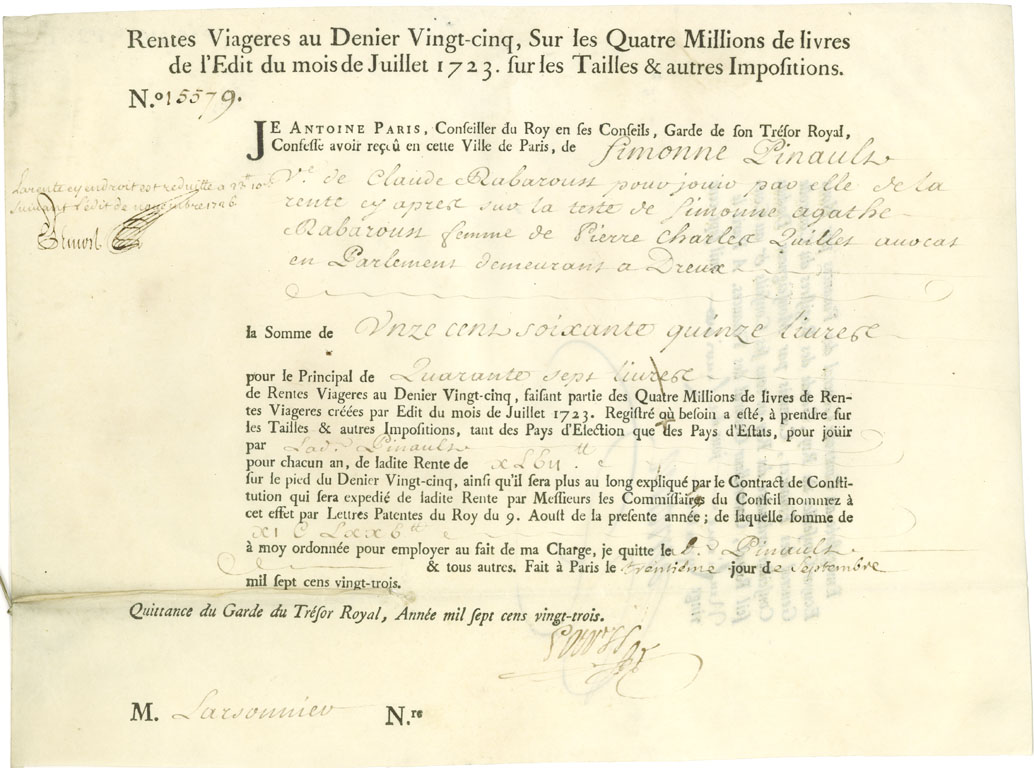 Rentes Viageres au Denier Vingt-cinq, Sur les Quatre Millions de livres
de l'Edit du mois de Juillet 1723. sur les Tailles & autres Impositions.
N.º 15579.
JE ANTOINE PARIS, Conseiller du Roy en ses Conseils, Garde de son Trésor Royal,
Confesse avoir reçû en cette Ville de Paris, de Simonne Pinault
Vᵉ de Claude Rabaroust pour jouir par elle de la
rente cy apres sur la teste de Simonne agathe
Rabaroust femme de Pierre Charles Quillet avocat
en Parlement demeurant a Dreux
La rente cy endroit est reduitte a
suivant l'edit de novembre 1726
la Somme de Unze cent soixante quinze livres
pour le Principal de Quarante sept livres
de Rentes Viageres au Denier Vingt-cinq, faisant partie des Quatre Millions de livres de Ren-
tes Viageres créées par Edit du mois de Juillet 1723. Registré où besoin a esté, à prendre sur
les Tailles & autres Impositions, tant des Pays d'Election que des Pays d'Estats, pour joüir
par Lad. Pinault
pour chacun an, de ladite Rente de XLVII tt
sur le pied du Denier Vingt-cinq, ainsi qu'il sera plus au long expliqué par le Contract de Consti-
tution qui sera expedié de ladite Rente par Messieurs les Commissaires du Conseil nommez à
cet effet par Lettres Patentes du Roy du 9. Aoust de la presente année; de laquelle somme de
XI C LXXV tt
à moy ordonnée pour employer au fait de ma Charge, je quitte le d. Pinault
& tous autres. Fait à Paris le trentième jour de Septembre
mil sept cens vingt-trois.
Quittance du Garde du Trésor Royal, Année mil sept cens vingt-trois.
M. Larsonnier N.re